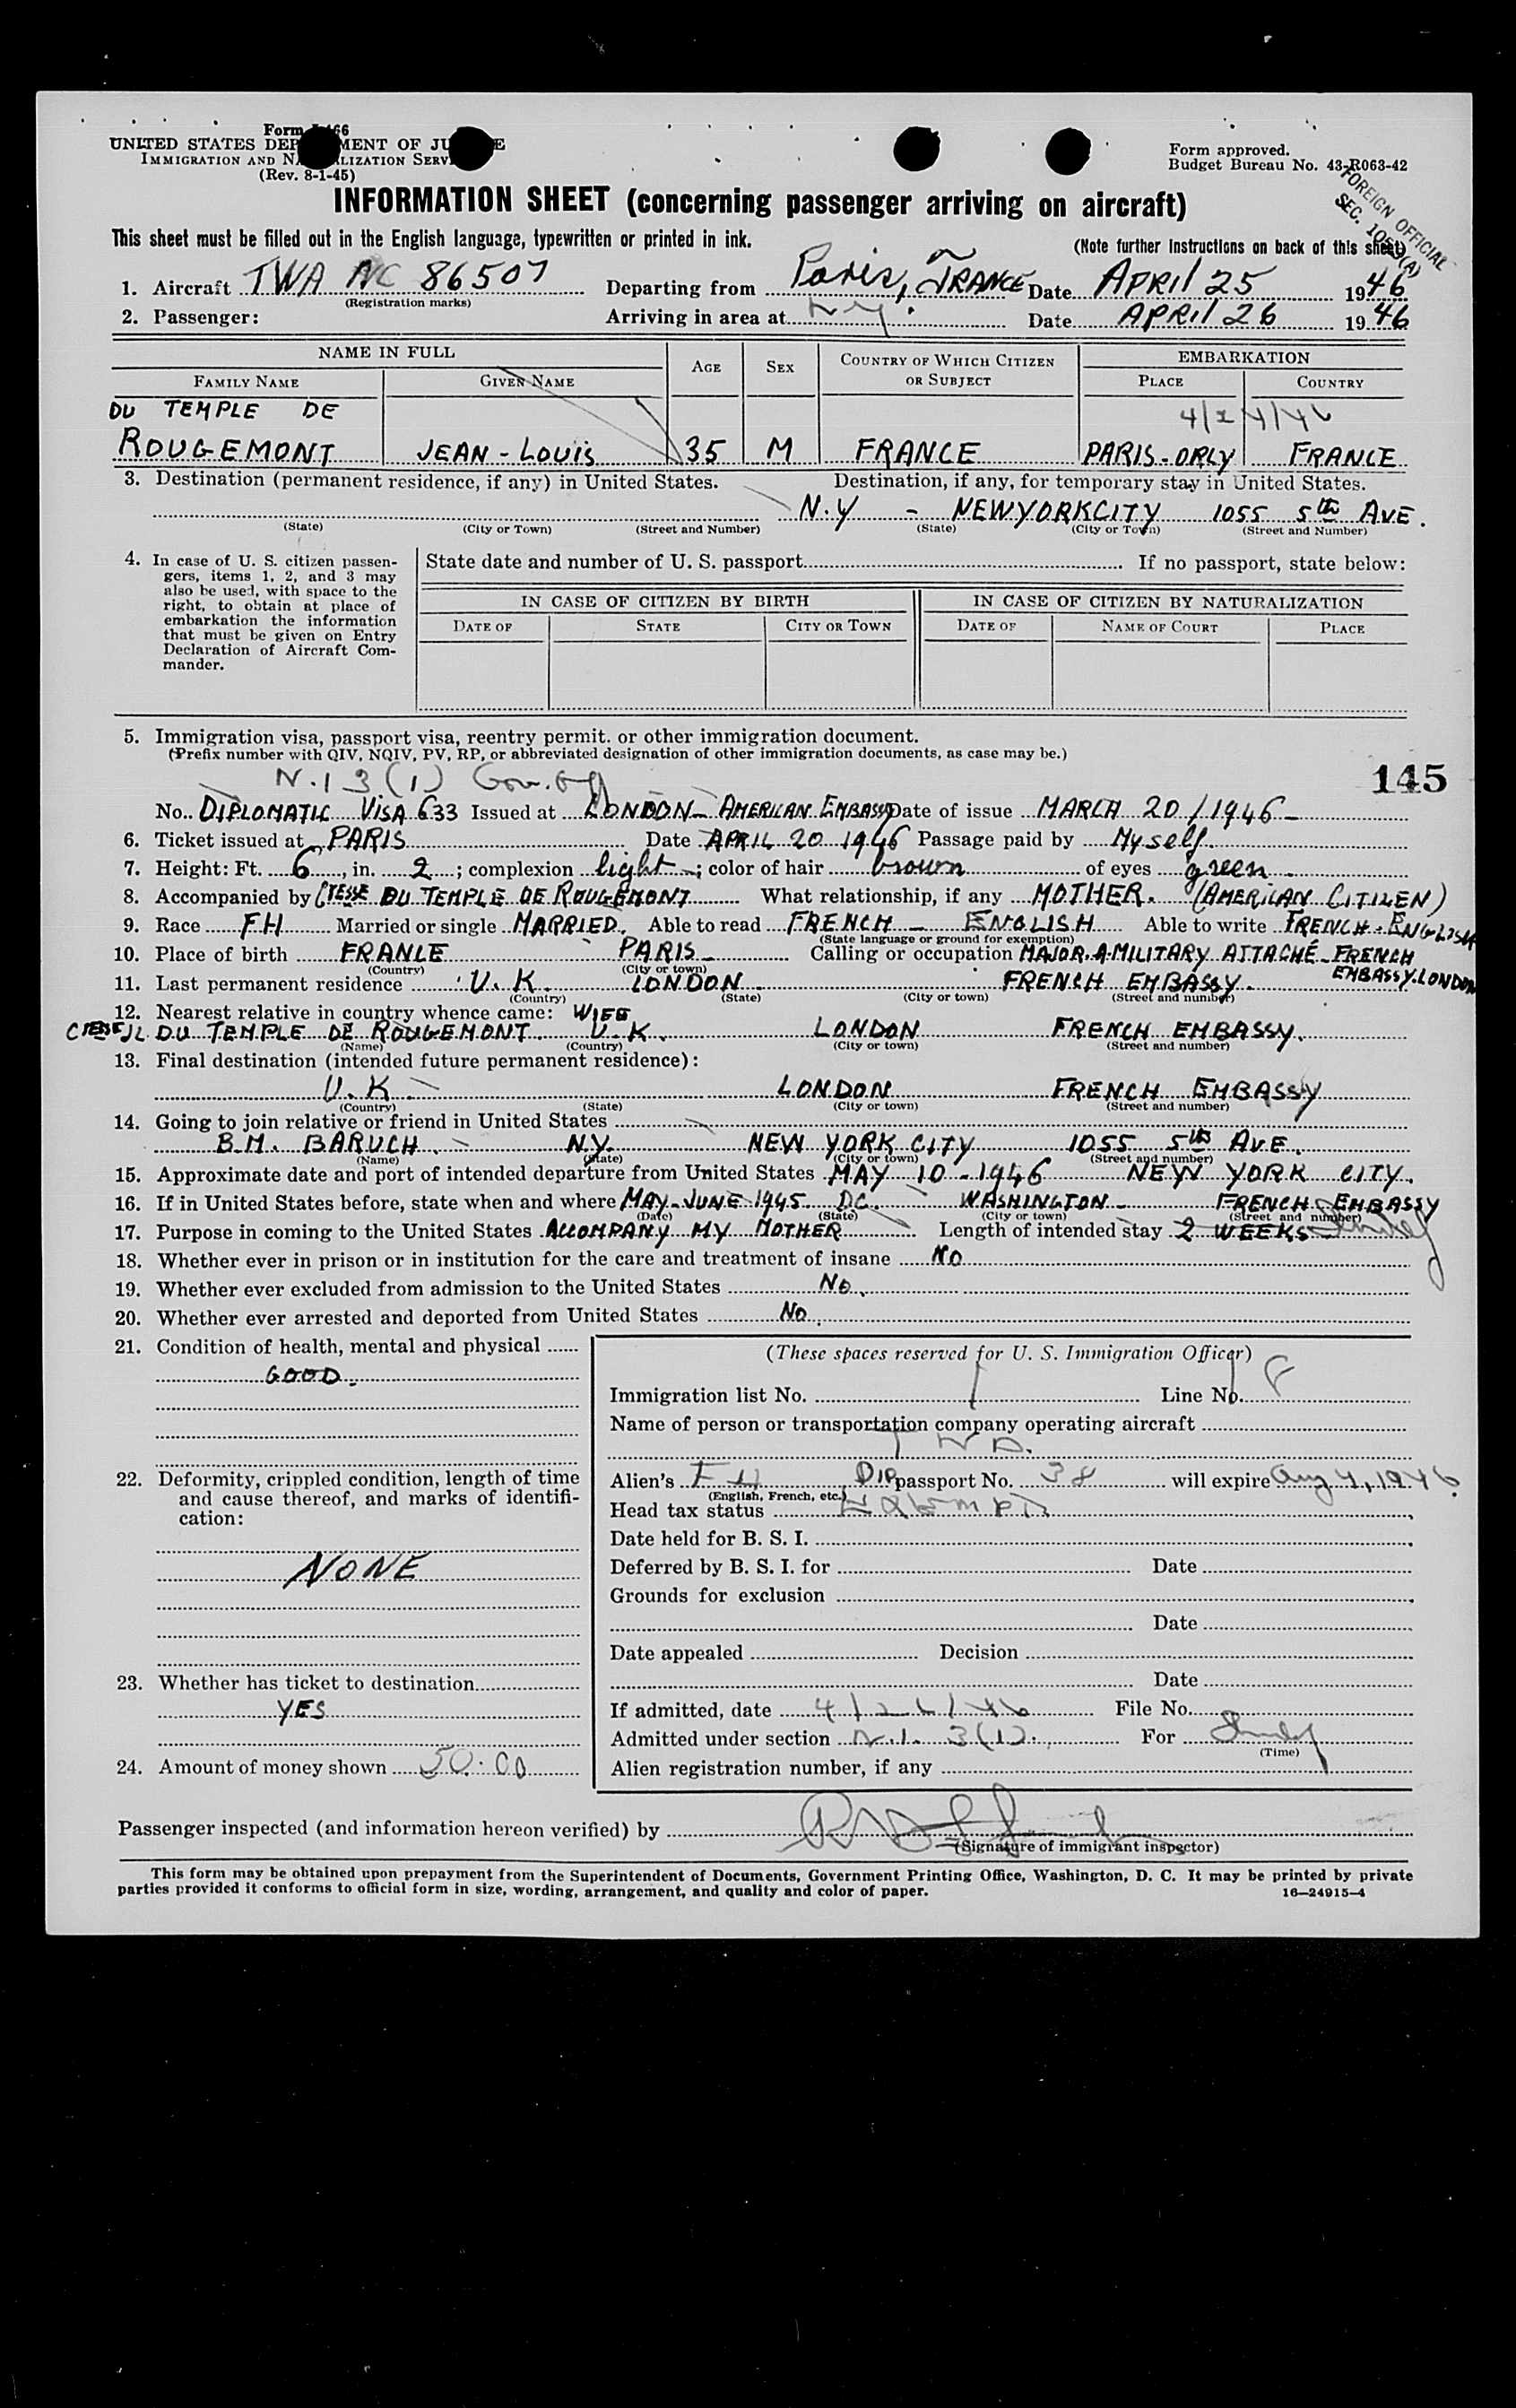 Form I-466
UNITED STATES DEPARTMENT OF JUSTICE
IMMIGRATION AND NATURALIZATION SERVICE
(Rev. 8-1-45)
Form approved.
Budget Bureau No. 43-R063-42
FOREIGN OFFICIAL
SEC.
INFORMATION SHEET (concerning passenger arriving on aircraft)
This sheet must be filled out in the English language, typewritten or printed in ink.
(Note further instructions on back of this sheet)
1. Aircraft TWA NC 86507 Departing from Paris, FRANCE Date APRIL 25 1946
(Registration marks)
2. Passenger: Arriving in area at N.Y. Date APRIL 26 1946
NAME IN FULL AGE SEX COUNTRY OF WHICH CITIZEN OR SUBJECT EMBARKATION
FAMILY NAME GIVEN NAME PLACE COUNTRY
DU TEMPLE DE 4/24/46
ROUGEMONT JEAN-LOUIS 35 M FRANCE PARIS-ORLY FRANCE
3. Destination (permanent residence, if any) in United States. Destination, if any, for temporary stay in United States.
N.Y - NEW YORK CITY 1055 5th AVE.
(State) (City or Town) (Street and Number) (State) (City or Town) (Street and Number)
4. In case of U. S. citizen passen-
gers, items 1, 2, and 3 may
also be used, with space to the
right, to obtain at place of
embarkation the information
that must be given on Entry
Declaration of Aircraft Com-
mander.
State date and number of U. S. passport If no passport, state below:
IN CASE OF CITIZEN BY BIRTH IN CASE OF CITIZEN BY NATURALIZATION
DATE OF STATE CITY OR TOWN DATE OF NAME OF COURT PLACE
5. Immigration visa, passport visa, reentry permit. or other immigration document.
(Prefix number with QIV, NQIV, PV, RP, or abbreviated designation of other immigration documents, as case may be.)
145
N.I 3.(1) Gov. Off
No. DIPLOMATIC VISA 633 Issued at LONDON - AMERICAN EMBASSY Date of issue MARCH 20/1946 -
6. Ticket issued at PARIS Date APRIL 20 1946 Passage paid by Myself.
7. Height: Ft. 6, in. 2; complexion light; color of hair brown of eyes green
8. Accompanied by CTESSE DU TEMPLE DE ROUGEMONT What relationship, if any MOTHER. (AMERICAN CITIZEN)
9. Race FH Married or single MARRIED. Able to read FRENCH - ENGLISH Able to write FRENCH - ENGLISH
(State language or ground for exemption)
10. Place of birth FRANCE PARIS Calling or occupation MAJOR. A. MILITARY ATTACHÉ - FRENCH
EMBASSY. LONDON
(Country) (City or town)
11. Last permanent residence U.K. LONDON FRENCH EMBASSY.
(Country) (State) (City or town) (Street and number)
12. Nearest relative in country whence came: WIFE
CTESSE JL DU TEMPLE DE ROUGEMONT U.K. LONDON FRENCH EMBASSY.
(Name) (Country) (City or town) (Street and number)
13. Final destination (intended future permanent residence):
U.K LONDON FRENCH EMBASSY
(Country) (State) (City or town) (Street and number)
14. Going to join relative or friend in United States
B.M. BARUCH. N.Y. NEW YORK CITY 1055 5th AVE.
(Name) (State) (City or town) (Street and number)
15. Approximate date and port of intended departure from United States MAY 10 - 1946 NEW YORK CITY.
16. If in United States before, state when and where MAY-JUNE 1945 DC. WASHINGTON - FRENCH EMBASSY
(Date) (State) (City or town) (Street and number)
17. Purpose in coming to the United States ACCOMPANY MY MOTHER Length of intended stay 2 WEEKS
18. Whether ever in prison or in institution for the care and treatment of insane No
19. Whether ever excluded from admission to the United States No.
20. Whether ever arrested and deported from United States No.
21. Condition of health, mental and physical
GOOD.
22. Deformity, crippled condition, length of time
and cause thereof, and marks of identifi-
cation:
NONE
23. Whether has ticket to destination
YES
24. Amount of money shown 50.00
(These spaces reserved for U. S. Immigration Officer)
Immigration list No. 1 Line No. 8
Name of person or transportation company operating aircraft
T W A.
Alien's FH Dip passport No. 38 will expire Aug 4, 1946.
(English, French, etc.)
Head tax status Exempt
Date held for B. S. I.
Deferred by B. S. I. for Date
Grounds for exclusion
Date
Date appealed Decision
Date
If admitted, date 4/26/46 File No.
Admitted under section N.I. 3(1). For
(Time)
Alien registration number, if any
Passenger inspected (and information hereon verified) by
(Signature of immigrant inspector)
This form may be obtained upon prepayment from the Superintendent of Documents, Government Printing Office, Washington, D. C. It may be printed by private
parties provided it conforms to official form in size, wording, arrangement, and quality and color of paper. 16—24915-4